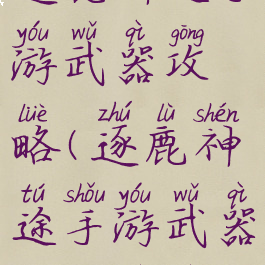 yóu wǔ qì gōng
游武器攻
lüè zhú lù shén
略(逐鹿神
tú shǒu yóu wǔ qì
途手游武器